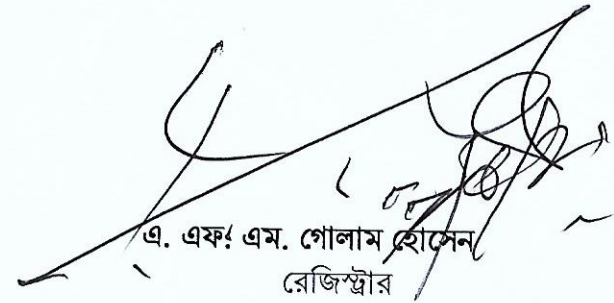 এ. এফ. এম. গোলাম হোসেন
রেজিস্ট্রার